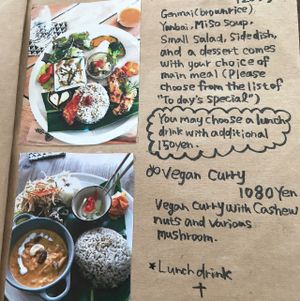 Genmai(brown rice)
Yanbai, Miso soup,
Small salad, Side dish,
and a dessert comes
with your choice of
main meal (Please
choose from the list of
"Today's Special")
You may choose a lunch
drink with additional
150yen.
Vegan Curry
1080Yen
Vegan Curry with Cashew
nuts and various
mushroom.
*Lunch drink